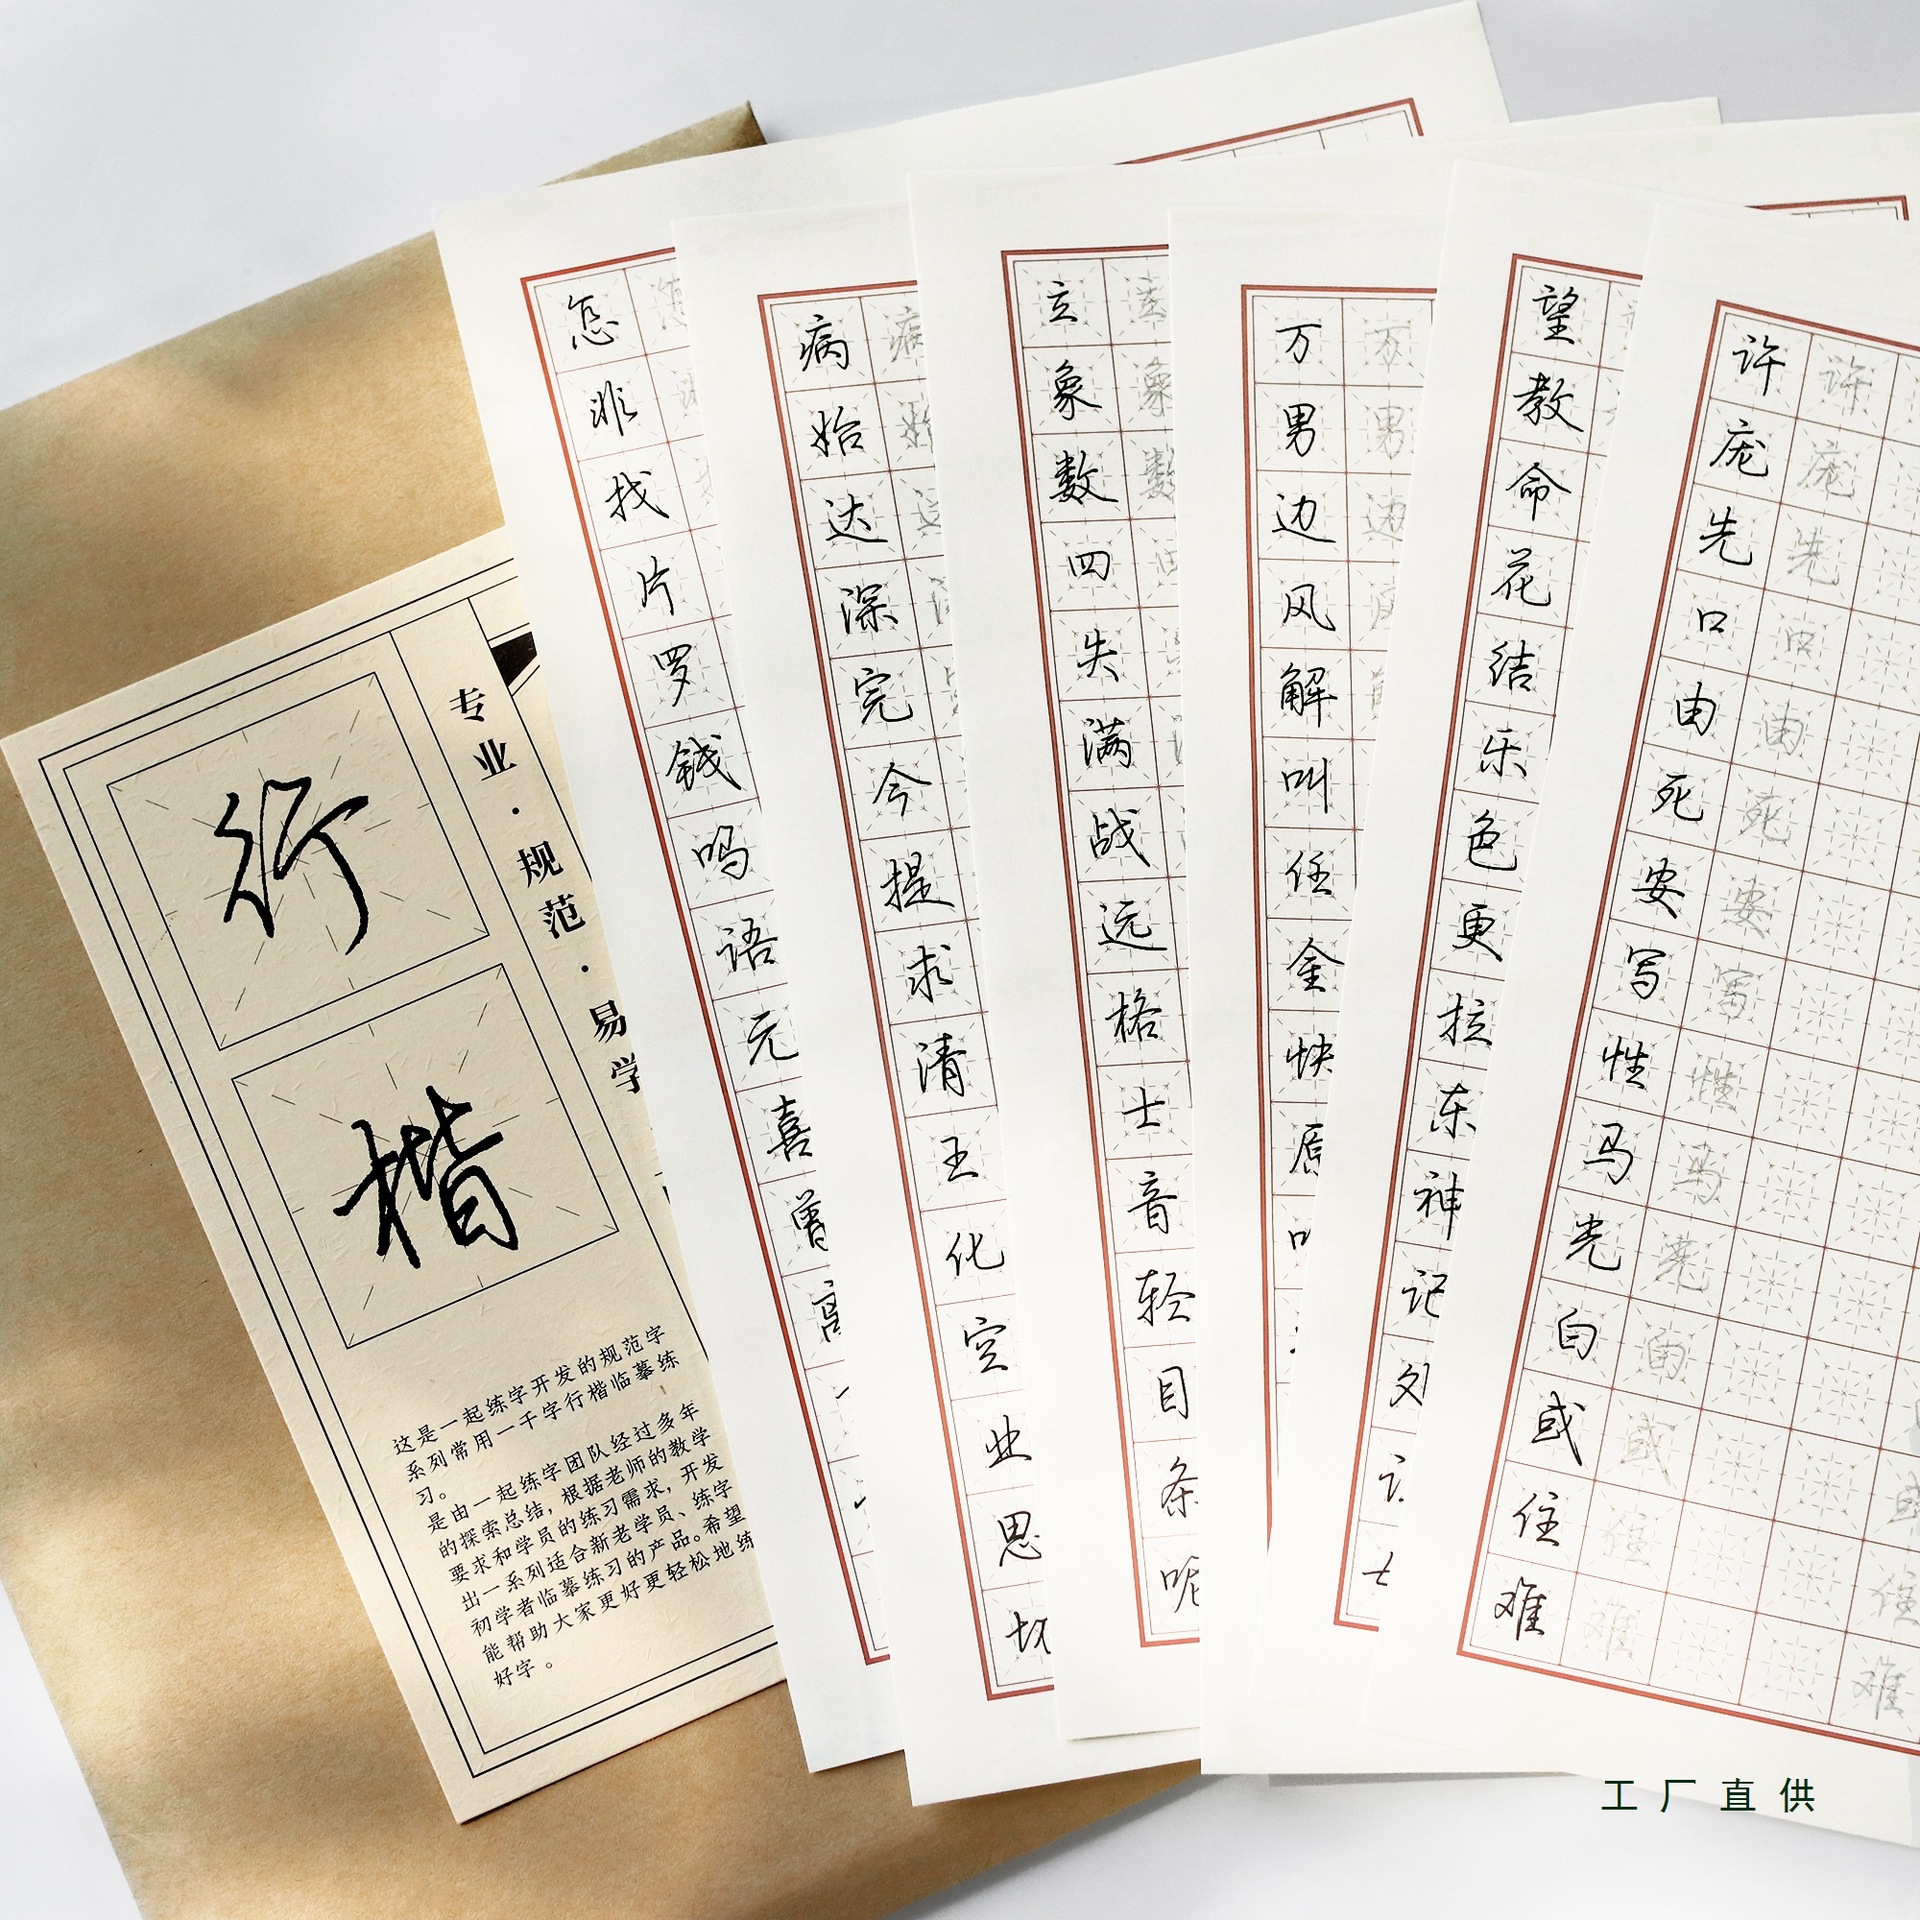 行
楷
专业·规范·易学
这是一起练字开发的规范字
系列常用一千字行楷临摹练
习。
是由一起练字团队经过多年
的探索总结，根据老师的教学
要求和学员的练习需求，开发
出一系列适合新老学员、练字
初学者临摹练习的产品。希望
能帮助大家更好更轻松地练
好字。
怎
非
找
片
罗
钱
吗
语
元
喜
曾
高
病
始
达
深
完
今
提
求
清
王
化
空
业
思
切
立
象
数
四
失
满
战
远
格
士
音
轻
目
条
呢
万
男
边
风
解
叫
任
金
快
望
教
命
花
结
乐
色
更
拉
东
神
记
许
庞
先
口
由
死
安
写
性
马
光
白
或
住
难
工厂直供